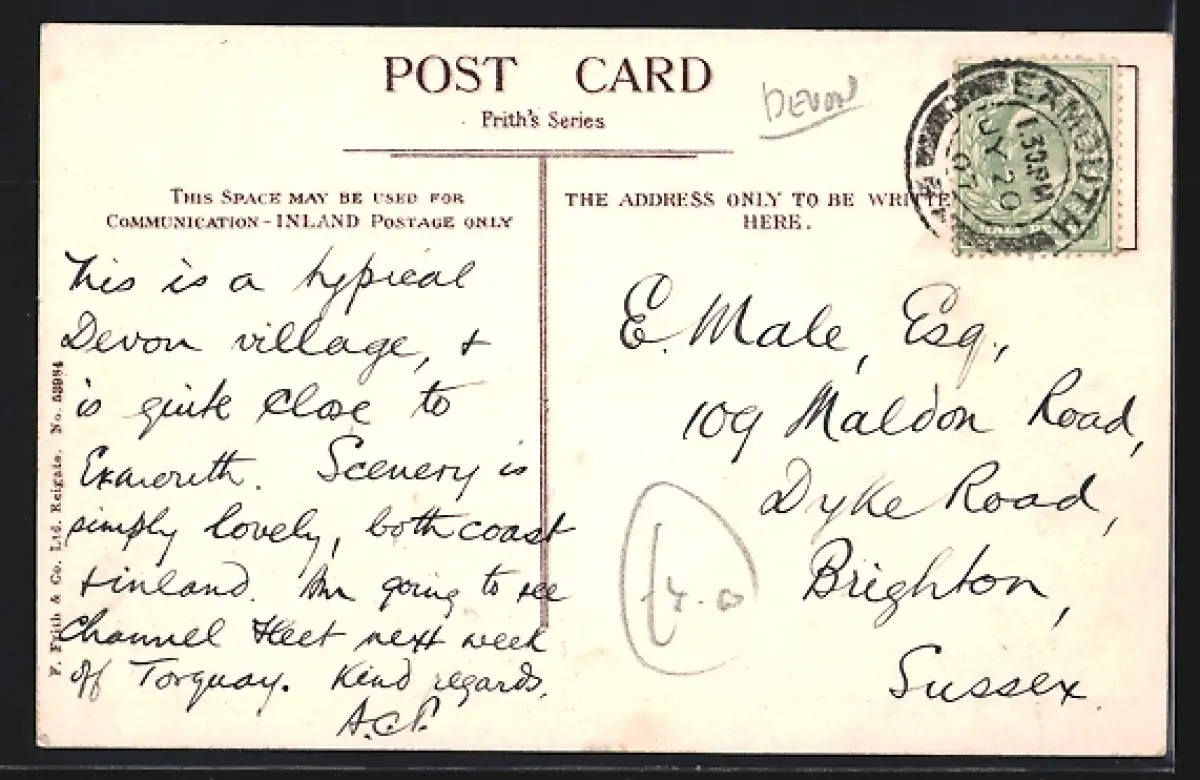 POST CARD
Frith's Series
DEVON
THIS SPACE MAY BE USED FOR
COMMUNICATION - INLAND POSTAGE ONLY
THE ADDRESS ONLY TO BE WRITTE
HERE.
EXMOUTH
1.30PM
JY 20
07
This is a typical
Devon village, &
is quite close to
Exmouth. Scenery is
simply lovely, both coast
& inland. Am going to see
Channel Fleet next week
off Torquay. Kind regards.
A.C.P.
E. Male, Esq.,
109 Maldon Road,
Dyke Road,
Brighton,
Sussex.
F. Frith & Co. Ltd. Reigate. No. 53984